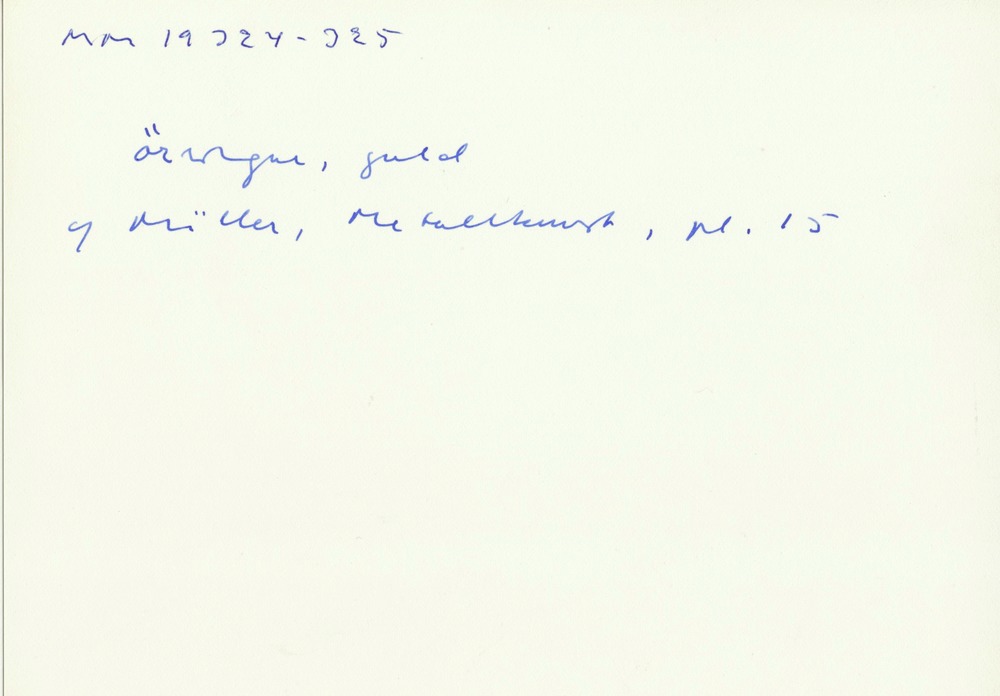 MM 19324-325
Örringar, guld
cf Müller, Metallkunst, pl. 15